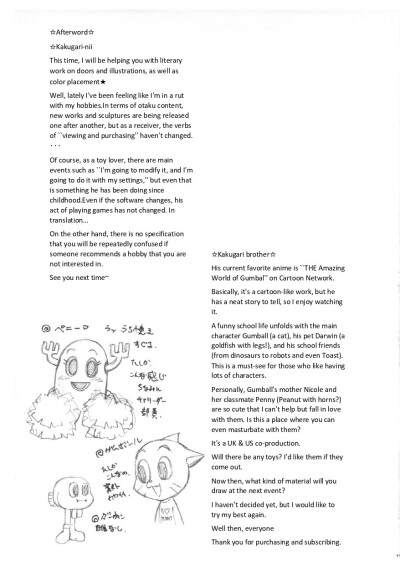 ☆Afterword☆
☆Kakugari-nii
This time, I will be helping you with literary
work on doors and illustrations, as well as
color placement★
Well, lately I've been feeling like I'm in a rut
with my hobbies.In terms of otaku content,
new works and sculptures are being released
one after another, but as a receiver, the verbs
of ``viewing and purchasing'' haven't changed.
・・・
Of course, as a toy lover, there are main
events such as ``I'm going to modify it, and I'm
going to do it with my settings,'' but even that
is something he has been doing since
childhood.Even if the software changes, his
act of playing games has not changed. In
translation...
On the other hand, there is no specification
that you will be repeatedly confused if
someone recommends a hobby that you are
not interested in.
See you next time~
☆Kakugari brother☆
His current favorite anime is ``THE Amazing
World of Gumbal'' on Cartoon Network.
Basically, it's a cartoon-like work, but he
has a neat story to tell, so I enjoy watching
it.
A funny school life unfolds with the main
character Gumball (a cat), his pet Darwin (a
goldfish with legs!), and his school friends
(from dinosaurs to robots and even Toast).
This is a must-see for those who like having
lots of characters.
Personally, Gumball's mother Nicole and
her classmate Penny (Peanut with horns?)
are so cute that I can't help but fall in love
with them. Is this a place where you can
even masturbate with them?
It's a UK & US co-production.
Will there be any toys? I'd like them if they
come out.
Now then, what kind of material will you
draw at the next event?
I haven't decided yet, but I would like to
try my best again.
Well then, everyone
Thank you for purchasing and subscribing.
@ペニー
たしか
こんな感じ
ちなみに
チアリーダー
部員
@ガムボール
たしか
こんなの
@ダーウィン